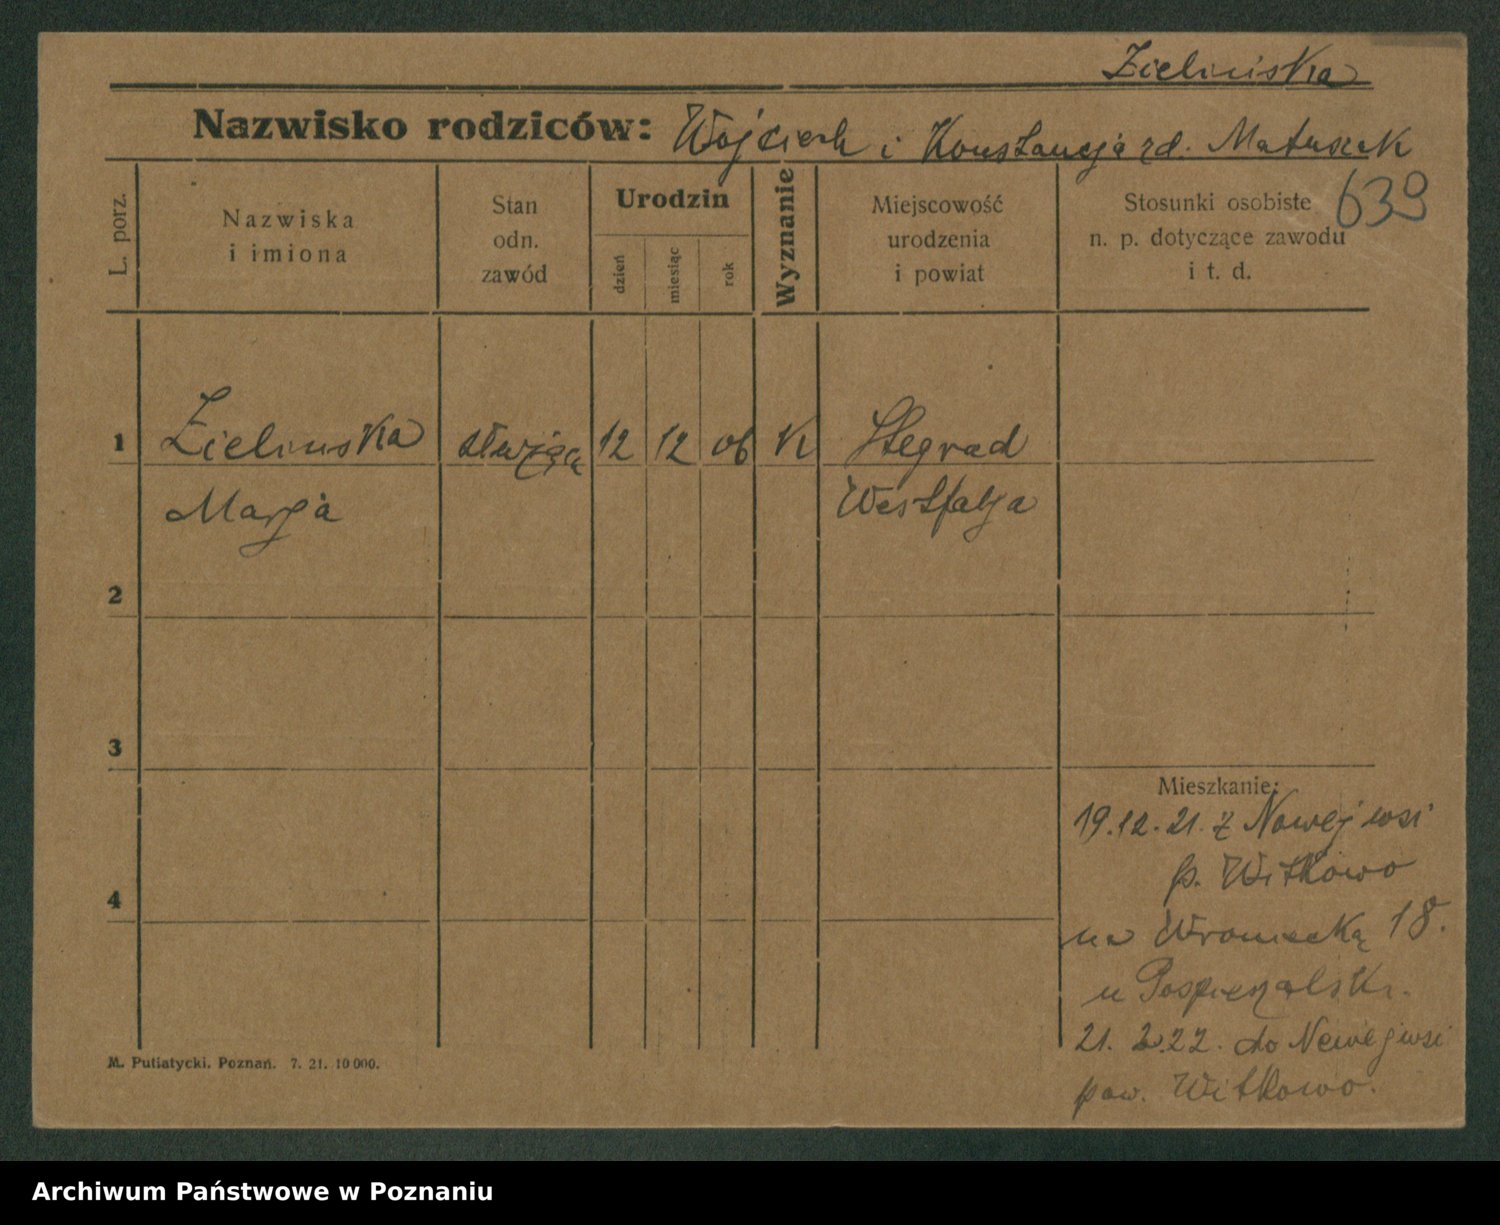 Zielinska
Nazwisko rodziców: Wojciech i Konstancja zd. Matuszak
639
L. porz.
Nazwiska
i imiona
Stan
odn.
zawód
Urodzin
dzień
miesiąc
rok
Wyznanie
Miejscowość
urodzenia
i powiat
Stosunki osobiste
n. p. dotyczące zawodu
i t. d.
1
Zielinska
służąca
12
12
06
K
Stegrad
Marja
Westfalja
2
3
4
Mieszkanie:
19.12.21. z Nowejwsi
p. Witkowo
na Wroniecką 18.
u Pospieszalski.
21. 2.22. do Nowejwsi
pow. Witkowo.
M. Putiatycki. Poznań. 7. 21. 10 000.
Archiwum Państwowe w Poznaniu